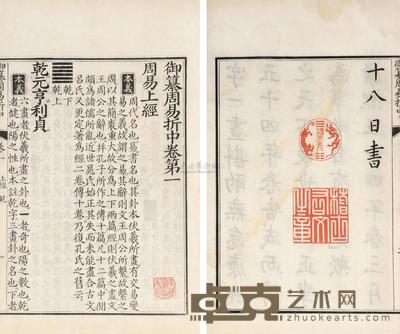 十八日書
御纂周易折中卷第一
周易上經
本義
周代名也易書名也其卦本伏羲所畫有交易變
易之義故謂之易其辭則文王周公所繫故繫之
周以其簡袠重大故分為上下兩篇經則伏羲之畫文
王周公之辭也并孔子所作之傳十篇凡十二篇中間
頗為諸儒所亂近世晁氏始正其失而未能盡合古文
呂氏又更定著為經二卷傳十卷乃復孔氏之舊云
乾下
乾上
乾元亨利貞
本義
六畫者伏羲所畫之卦也一者奇也陽之數也乾
者健也陽之性也本註乾字三畫卦之名也下者
上經 乾
卓克艺术网